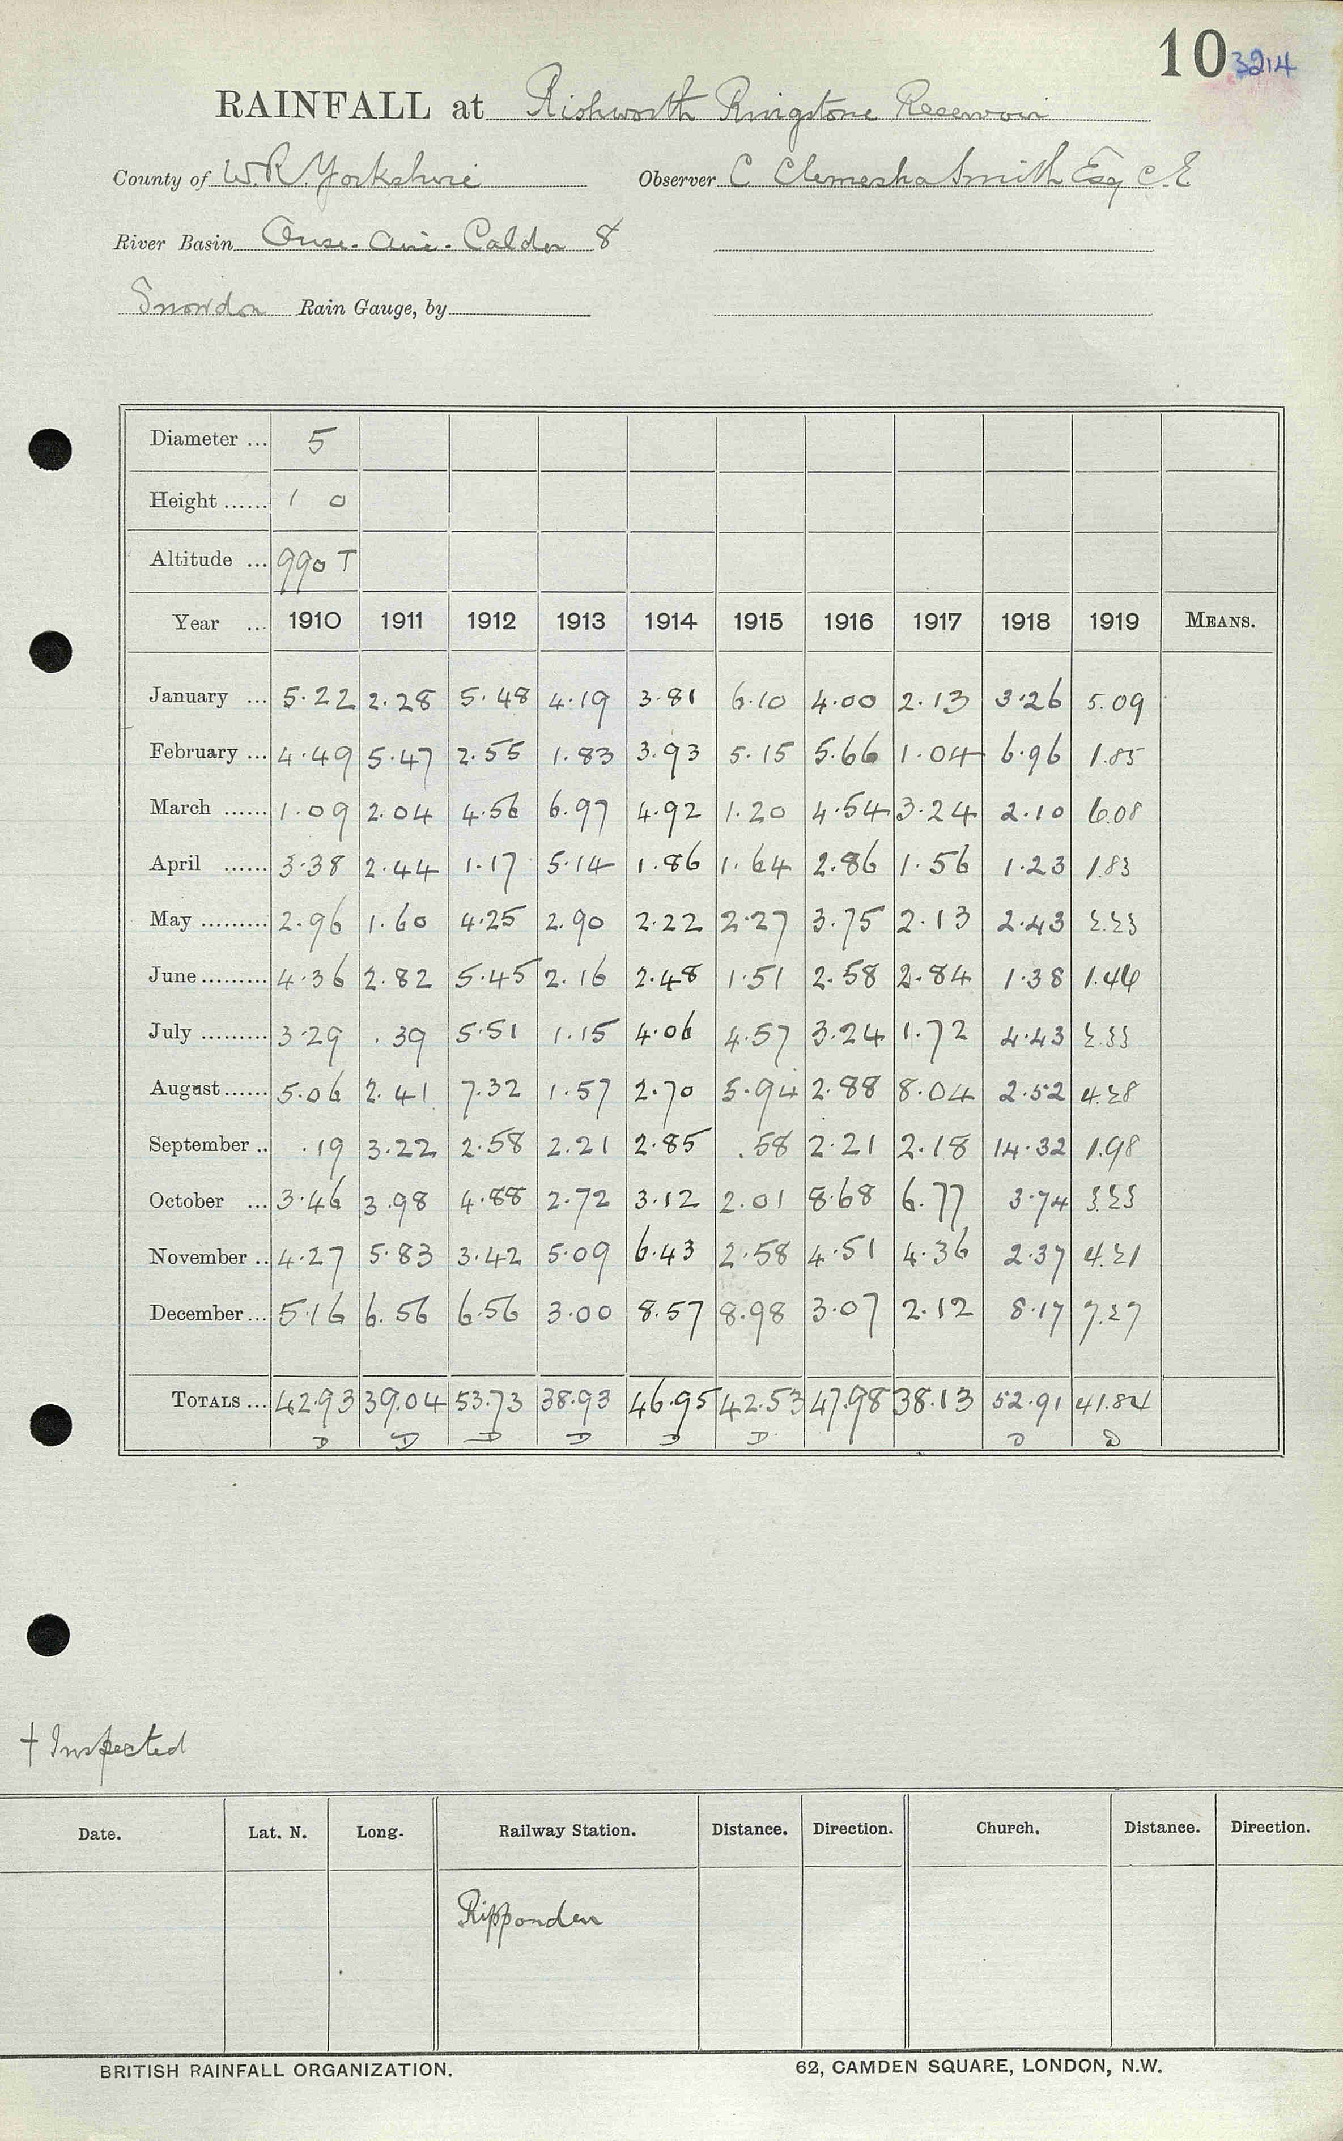 10 3214
RAINFALL at Rishworth Ringstone Reservoir
County of W.R. Yorkshire Observer C Clemesha Smith Esq C.E
River Basin Ouse-Aire-Calder 8
Snowdon Rain Gauge, by
Diameter ... 5
Height ...... 1 0
Altitude ... 990 T
Year ... 1910 1911 1912 1913 1914 1915 1916 1917 1918 1919 MEANS.
January ... 5.22 2.28 5.48 4.19 3.81 6.10 4.00 2.13 3.26 5.09
February ... 4.49 5.47 2.55 1.83 3.93 5.15 5.66 1.04 6.96 1.85
March ...... 1.09 2.04 4.56 6.97 4.92 1.20 4.54 3.24 2.10 6.08
April ...... 3.38 2.44 1.17 5.14 1.86 1.64 2.86 1.56 1.23 1.83
May ......... 2.96 1.60 4.25 2.90 2.22 2.27 3.75 2.13 2.43 2.23
June ......... 4.36 2.82 5.45 2.16 2.48 1.51 2.58 2.84 1.38 1.46
July ......... 3.29 .39 5.51 1.15 4.06 4.57 3.24 1.72 4.43 2.33
August ...... 5.06 2.41 7.32 1.57 2.70 5.94 2.88 8.04 2.52 4.28
September .. .19 3.22 2.58 2.21 2.85 .58 2.21 2.18 14.32 1.98
October ... 3.46 3.98 4.88 2.72 3.12 2.01 8.68 6.77 3.74 3.23
November .. 4.27 5.83 3.42 5.09 6.43 2.58 4.51 4.36 2.37 4.21
December ... 5.16 6.56 6.56 3.00 8.57 8.98 3.07 2.12 8.17 7.27
TOTALS ... 42.93 39.04 53.73 38.93 46.95 42.53 47.98 38.13 52.91 41.84
D D D D D D D D
† Inspected
Date. Lat. N. Long. Railway Station. Distance. Direction. Church. Distance. Direction.
Ripponden
BRITISH RAINFALL ORGANIZATION. 62, CAMDEN SQUARE, LONDON, N.W.